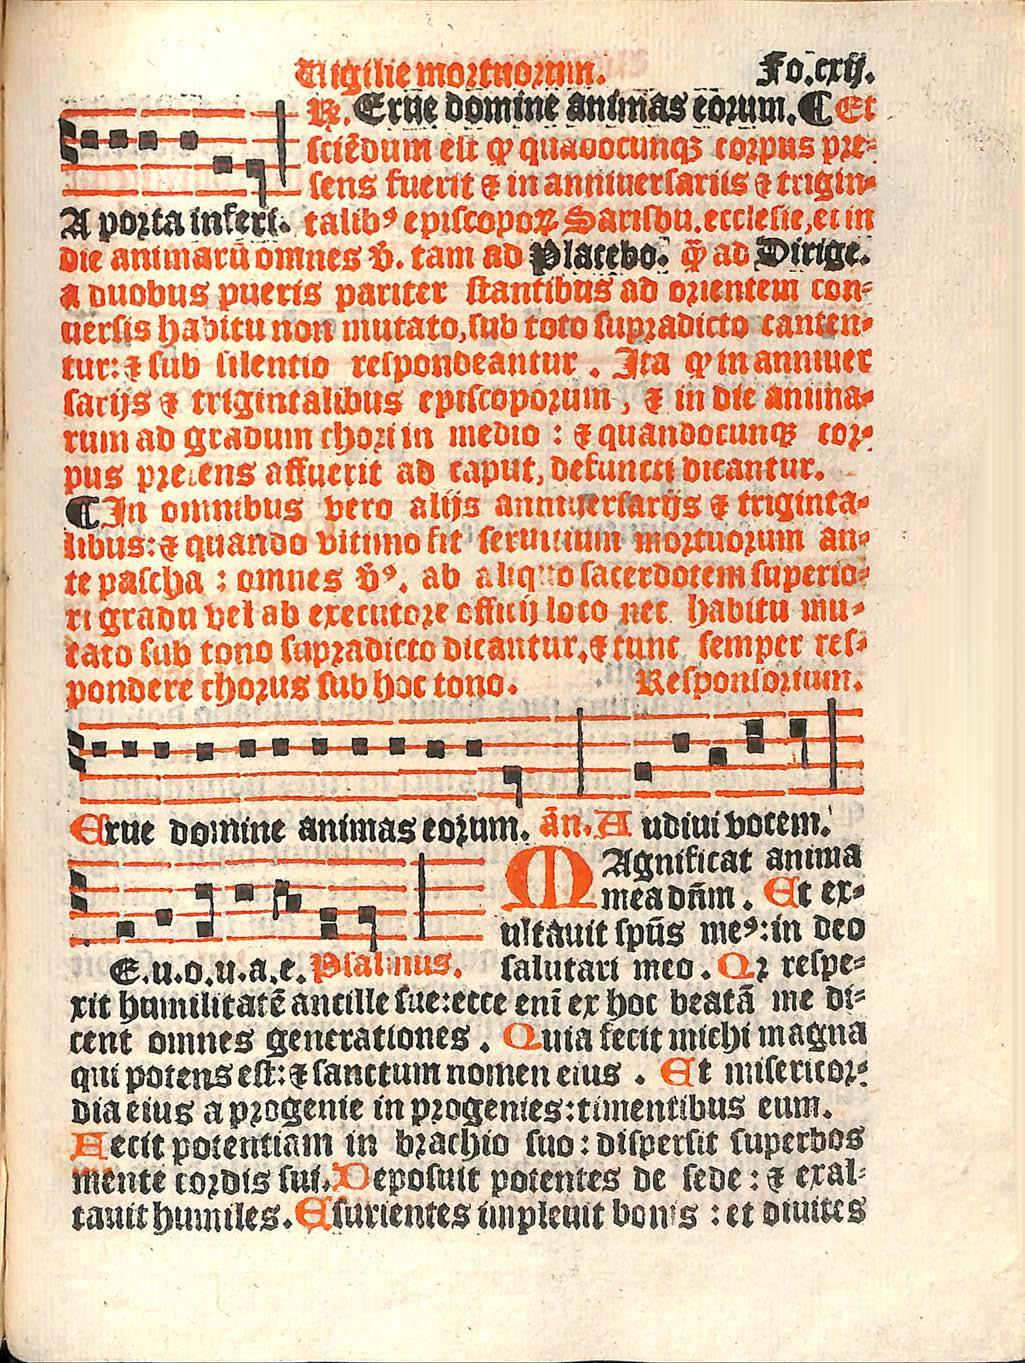 Uigilie mortuorum. Fo.cxij.
℟. Erue domine animas eorum. ¶ Et
sciēdum est ꝙ quādocunqꝫ corpus pre-
sens fuerit ⁊ in anniuersariis ⁊ trigin-
A porta inferi. talibꝰ episcopoꝝ Sarisbu. ecclesie, et in
die animarū omnes v̄. tam ad Placebo. ꝙ̄ ad Dirige.
a duobus pueris pariter stantibus ad orientem con-
uersis habitu non mutato, sub toto supradicto canten-
tur: ⁊ sub silentio respondeantur . Ita ꝙ in anniuer
sarijs ⁊ trigintalibus episcoporum , ⁊ in die anima-
rum ad gradum chori in medio : ⁊ quandocunqꝫ cor-
pus presens affuerit ad caput, defuncti dicantur.
¶ In omnibus vero alijs anniuersarijs ⁊ triginta-
libus: ⁊ quando vltimo fit seruitium mortuorum an-
te pascha : omnes v̄ꝰ. ab aliquo sacerdotem superio-
ri gradu vel ab executore officij loco nec habitu mu-
tato sub tono supradicto dicantur, ⁊ tunc semper res-
pondere chorus sub hoc tono. Responsorium.
Erue domine animas eorum. ān. A udiui vocem.
MAgnificat anima
mea dn̄m . Et ex-
ultauit spūs meꝰ: in deo
E.u.o.u.a.e. Psalmus. salutari meo . Qꝛ respe-
xit humilitatē ancille sue: ecce enī ex hoc beatā me di-
cent omnes generationes . Quia fecit michi magna
qui potens est: ⁊ sanctum nomen eius . Et misericor-
dia eius a progenie in progenies: timentibus eum.
Fecit potentiam in brachio suo : dispersit superbos
mente cordis sui. Deposuit potentes de sede : ⁊ exal-
tauit humiles. Esurientes impleuit bonis : et diuites